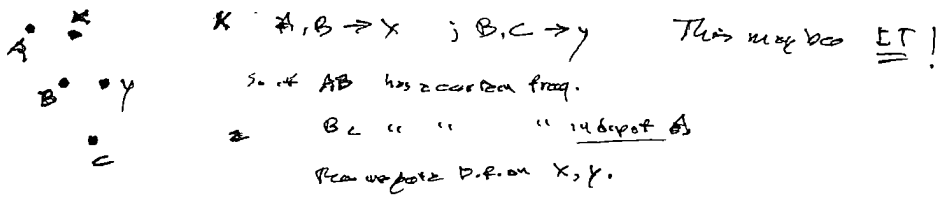 A X A, B → X ; B, C → Y This may be IT !
B Y So if AB has a certain freq.
C BC " " " indep of A
Then we get a D.F. on X, Y.